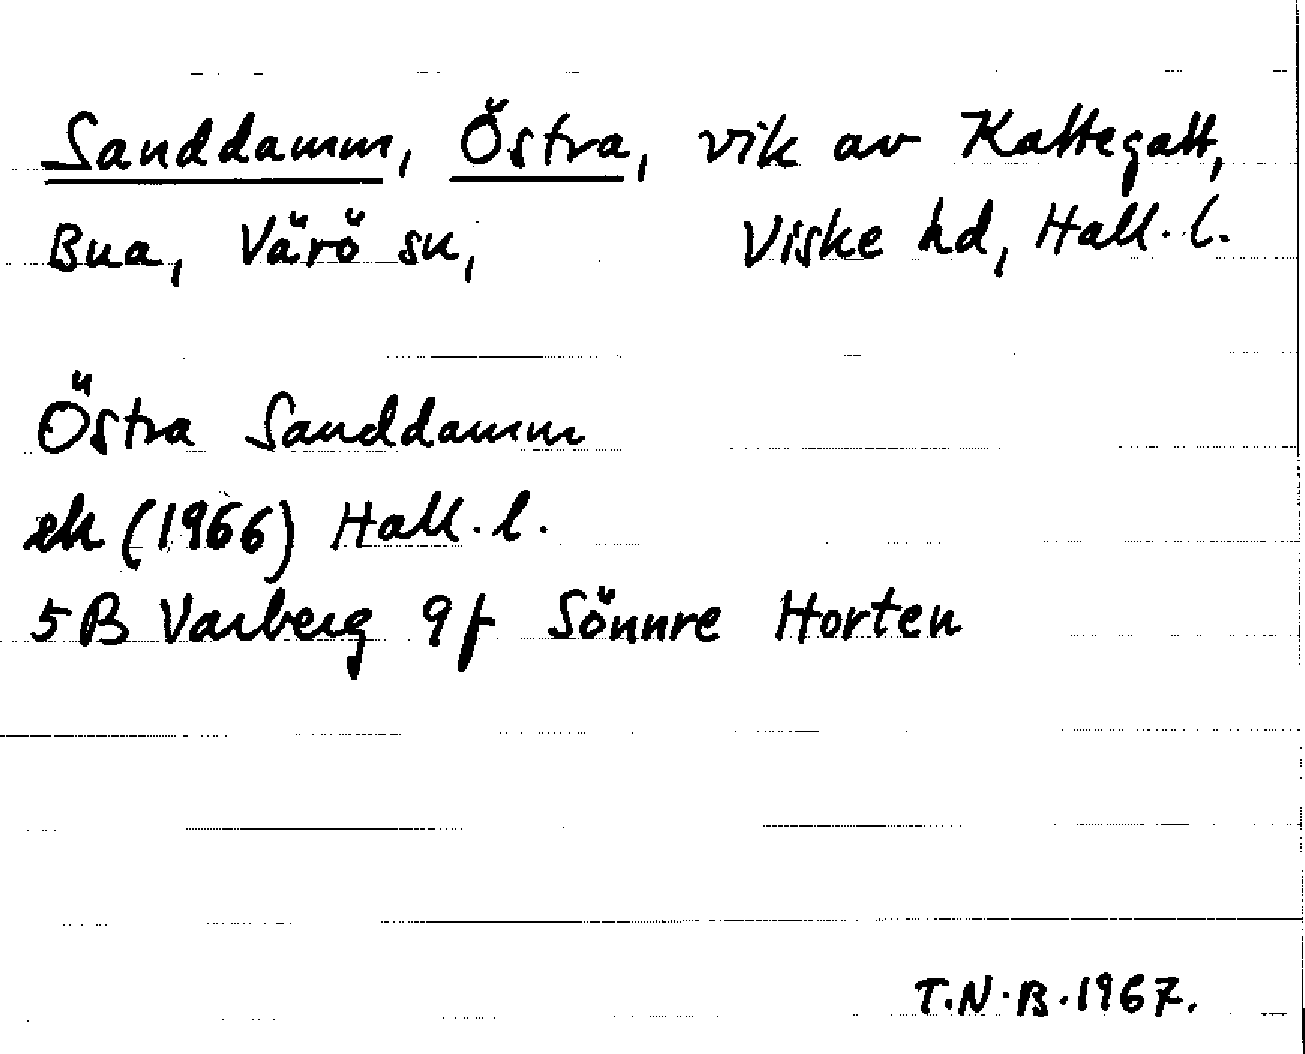 Sanddamm, Östra, vik av Kattegatt,
Bua, Värö sn, Viske hd, Hall. l.
Östra Sanddamm
ek (1966) Hall. l.
5B Varberg 9f Sönnre Horten
T.N.B. 1967.